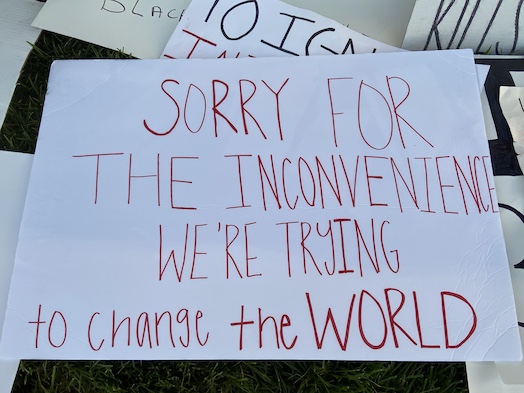 BLACK
TO IGN
SORRY FOR
THE INCONVENIENCE
WE'RE TRYING
to change the WORLD